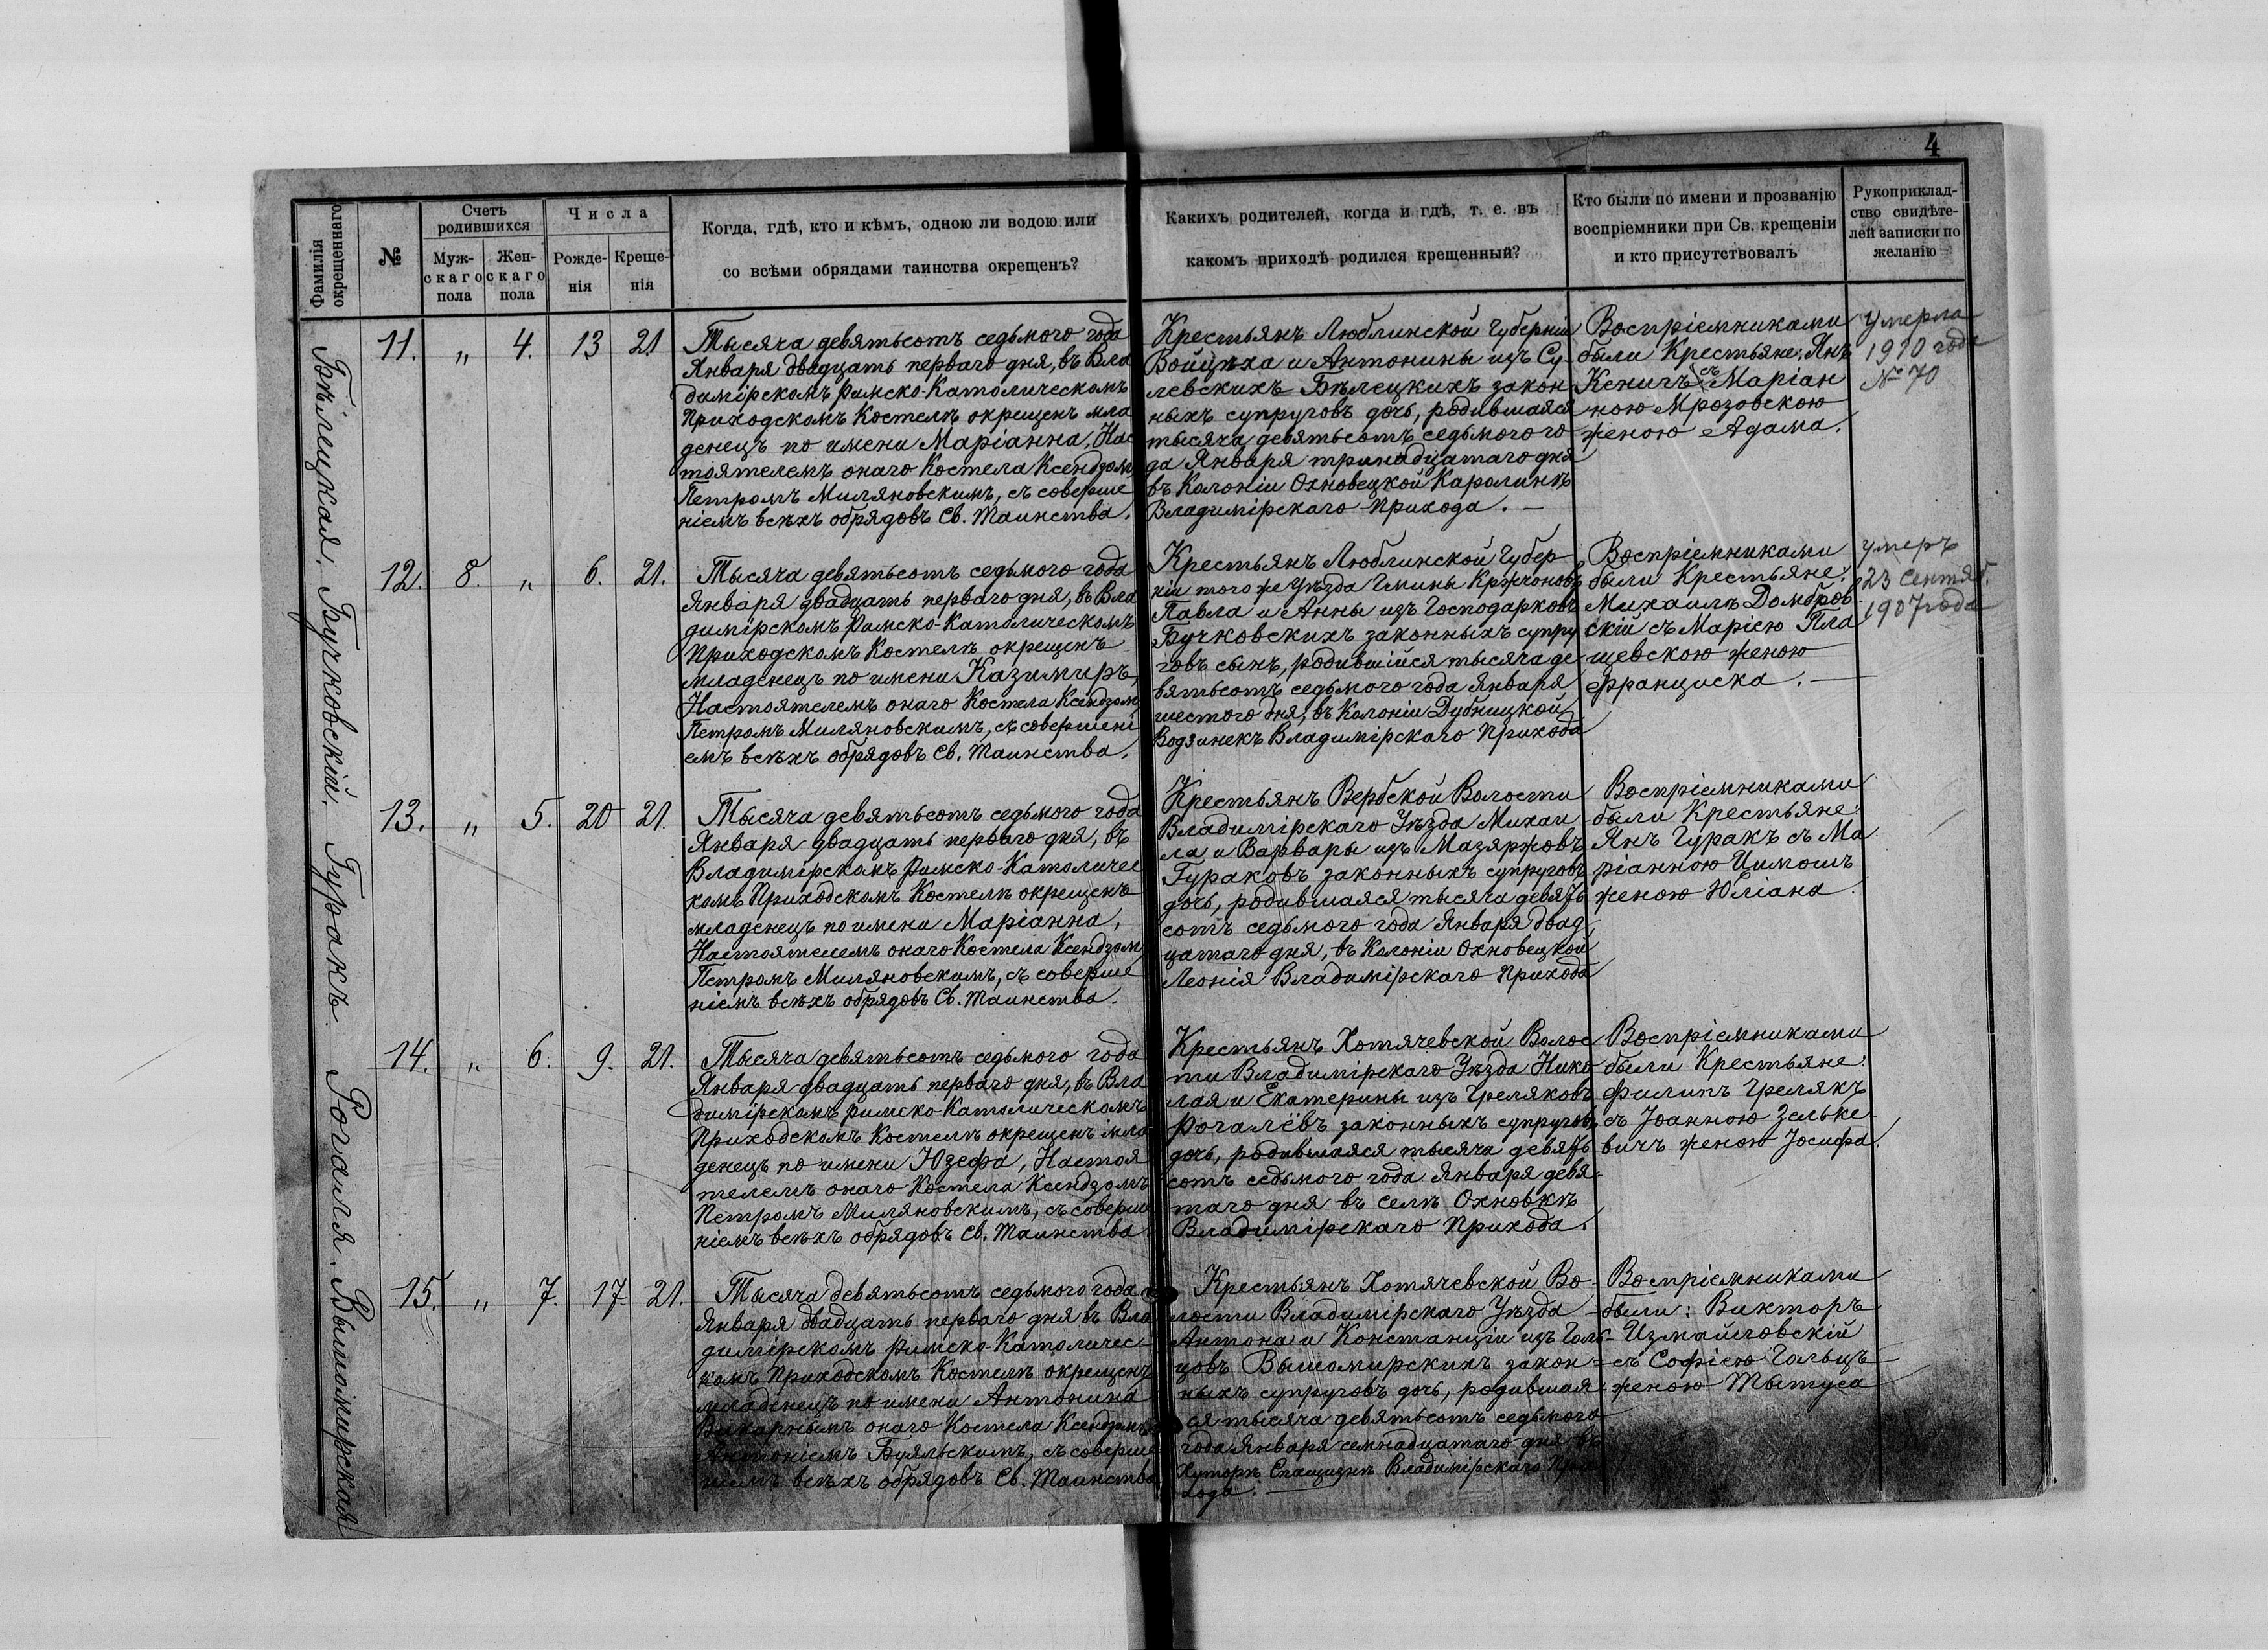 4
Фамилія окрещеннаго
№
Счетъ родившихся
Муж-
скаго
пола
Жен-
скаго
пола
Числа
Рожде-
нія
Креще-
нія
Когда, гдѣ, кто и кѣмъ, одною ли водою или
со всѣми обрядами таинства окрещенъ?
Какихъ родителей, когда и гдѣ, т. е. въ
какомъ приходѣ родился крещенный?
Кто были по имени и прозванію
воспріемники при Св. крещеніи
и кто присутствовалъ
Рукоприклад-
ство свидѣте-
лей записки по
желанію
Бѣлецкая.
11. „ 4. 13 21
Тысяча девятьсотъ седьмого года
Января двадцать перваго дня, въ Вла
димірскомъ Римско-Католическомъ
Приходскомъ Костелѣ окрещенъ мла
денецъ по имени Маріанна, Нас
тоятелемъ онаго Костела Ксендзомъ
Петромъ Миляновскимъ, съ соверше
ніемъ всѣхъ обрядовъ Св. Таинства.
Крестьянъ Люблинской Губерніи
Войцѣха и Антонины изъ Су-
левскихъ Бѣлецкихъ закон
ныхъ супруговъ дочь, родившаяся
тысяча девятьсотъ седьмого го
да Января тринадцатаго дня
въ Колоніи Охновецкой Каролинѣ
Владимірскаго Прихода.
Воспріемниками
были Крестьяне: Янъ
Кеничъ съ Маріан
ною Мрозовскою
женою Адама.
Умерла
1910 года
№ 70
Бучковскій.
12. 8. „ 6. 21.
Тысяча девятьсотъ седьмого года
Января двадцать перваго дня, въ Вла
димірскомъ Римско-Католическомъ
Приходскомъ Костелѣ окрещенъ
младенецъ по имени Казимиръ
Настоятелемъ онаго Костела Ксендзом
Петромъ Миляновскимъ, съ совершені
емъ всѣхъ обрядовъ Св. Таинства.
Крестьянъ Люблинской Губер-
ніи того же Уѣзда Гмины Кржчоновъ
Павла и Анны изъ Господарковъ
Бучковскихъ законныхъ супру
говъ сынъ, родившійся тысяча де-
вятьсотъ седьмого года Января
шестого дня, въ Колоніи Дубницкой
Водзинекъ Владимірскаго Прихода
Воспріемниками
были Крестьяне:
Михаилъ Домбров
скій съ Маріею Пла
щевскою женою
Франциска.
умеръ
23 Сентяб.
1907 года
Гуракъ.
13. „ 5. 20 21.
Тысяча девятьсотъ седьмого года
Января двадцать перваго дня, въ
Владимірскомъ Римско-Католичес
комъ Приходскомъ Костелѣ окрещенъ
младенецъ по имени Маріанна,
Настоятелемъ онаго Костела Ксендзом
Петромъ Миляновскимъ, съ соверше
ніемъ всѣхъ обрядовъ Св. Таинства.
Крестьянъ Вербской Волости
Владимірскаго Уѣзда Михаи
ла и Варвары изъ Мазяржовъ
Гураковъ законныхъ супруговъ
дочь, родившаяся тысяча девять
сотъ седьмого года Января двад
цатаго дня, въ Колоніи Охновецкой
Леонія Владимірскаго Прихода
Воспріемниками
были Крестьяне:
Янъ Гуракъ съ Ма
ріанною Цимошъ
женою Юліана.
Рогаля.
14. „ 6. 9. 21.
Тысяча девятьсотъ седьмого года
Января двадцать перваго дня, въ Вла
димірскомъ Римско-Католическомъ
Приходскомъ Костелѣ окрещенъ мла
денецъ по имени Юзефа, Настоя
телемъ онаго Костела Ксендзомъ
Петромъ Миляновскимъ, съ соверше
ніемъ всѣхъ обрядовъ Св. Таинства.
Крестьянъ Хотячевской Волос
ти Владимірскаго Уѣзда Нико
лая и Екатерины изъ Греляковъ
Рогалёвъ законныхъ супруговъ
дочь, родившаяся тысяча девять
сотъ седьмого года Января девя
таго дня въ селѣ Охновкѣ
Владимірскаго Прихода.
Воспріемниками
были Крестьяне:
Филипъ Грелякъ
съ Іоанною Зельке
вичъ женою Іосифа.
Вышомирская
15. „ 7. 17. 21.
Тысяча девятьсотъ седьмого года
Января двадцать перваго дня въ Вла
димірскомъ Римско-Католичес-
комъ Приходскомъ Костелѣ окрещенъ
младенецъ по имени Антонина
Викарнымъ онаго Костела Ксендзомъ
Антоніемъ Буяльскимъ, съ соверше
ніемъ всѣхъ обрядовъ Св. Таинства
Крестьянъ Хотячевской Во-
лости Владимірскаго Уѣзда
Антона и Констанціи изъ Голь-
цовъ Вышомирскихъ закон-
ныхъ супруговъ дочь, родившая
ся тысяча девятьсотъ седьмого
года Января семнадцатаго дня въ
Хуторѣ Спащизнѣ Владимірскаго При
хода.
Воспріемниками
были: Викторъ
Измайловскій
съ Софіею Гольцъ
женою Тытуса